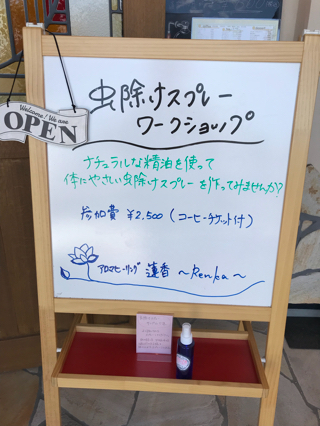 Welcome! We are
OPEN
虫除けスプレー
ワークショップ
ナチュラルな精油を使って
体にやさしい虫除けスプレーを作ってみませんか?
参加費 ¥2,500 (コーヒーチケット付)
アロマヒーリング 蓮香 ~Renka~